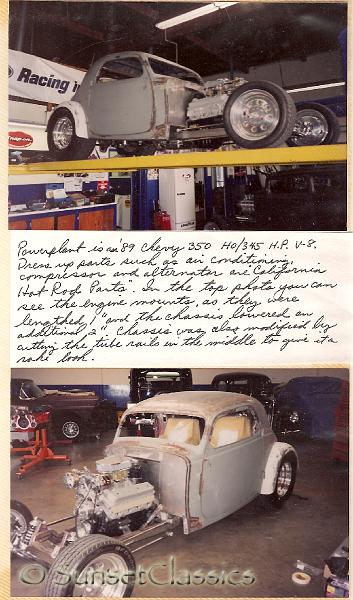 Racing in
Snap-on
Powerplant is a '89 Chevy 350 HO/345 H.P. V-8.
Dress up parts such as air conditioning,
compressor and alternator are "California
Hot Rod Parts". In the top photo you can
see the engine mounts, as they were
lengthed, 1" and the chassis lowered an
additional 2". Chassis was also modified by
cutting the tube rails in the middle to give it a
rake look.
© SunsetClassics